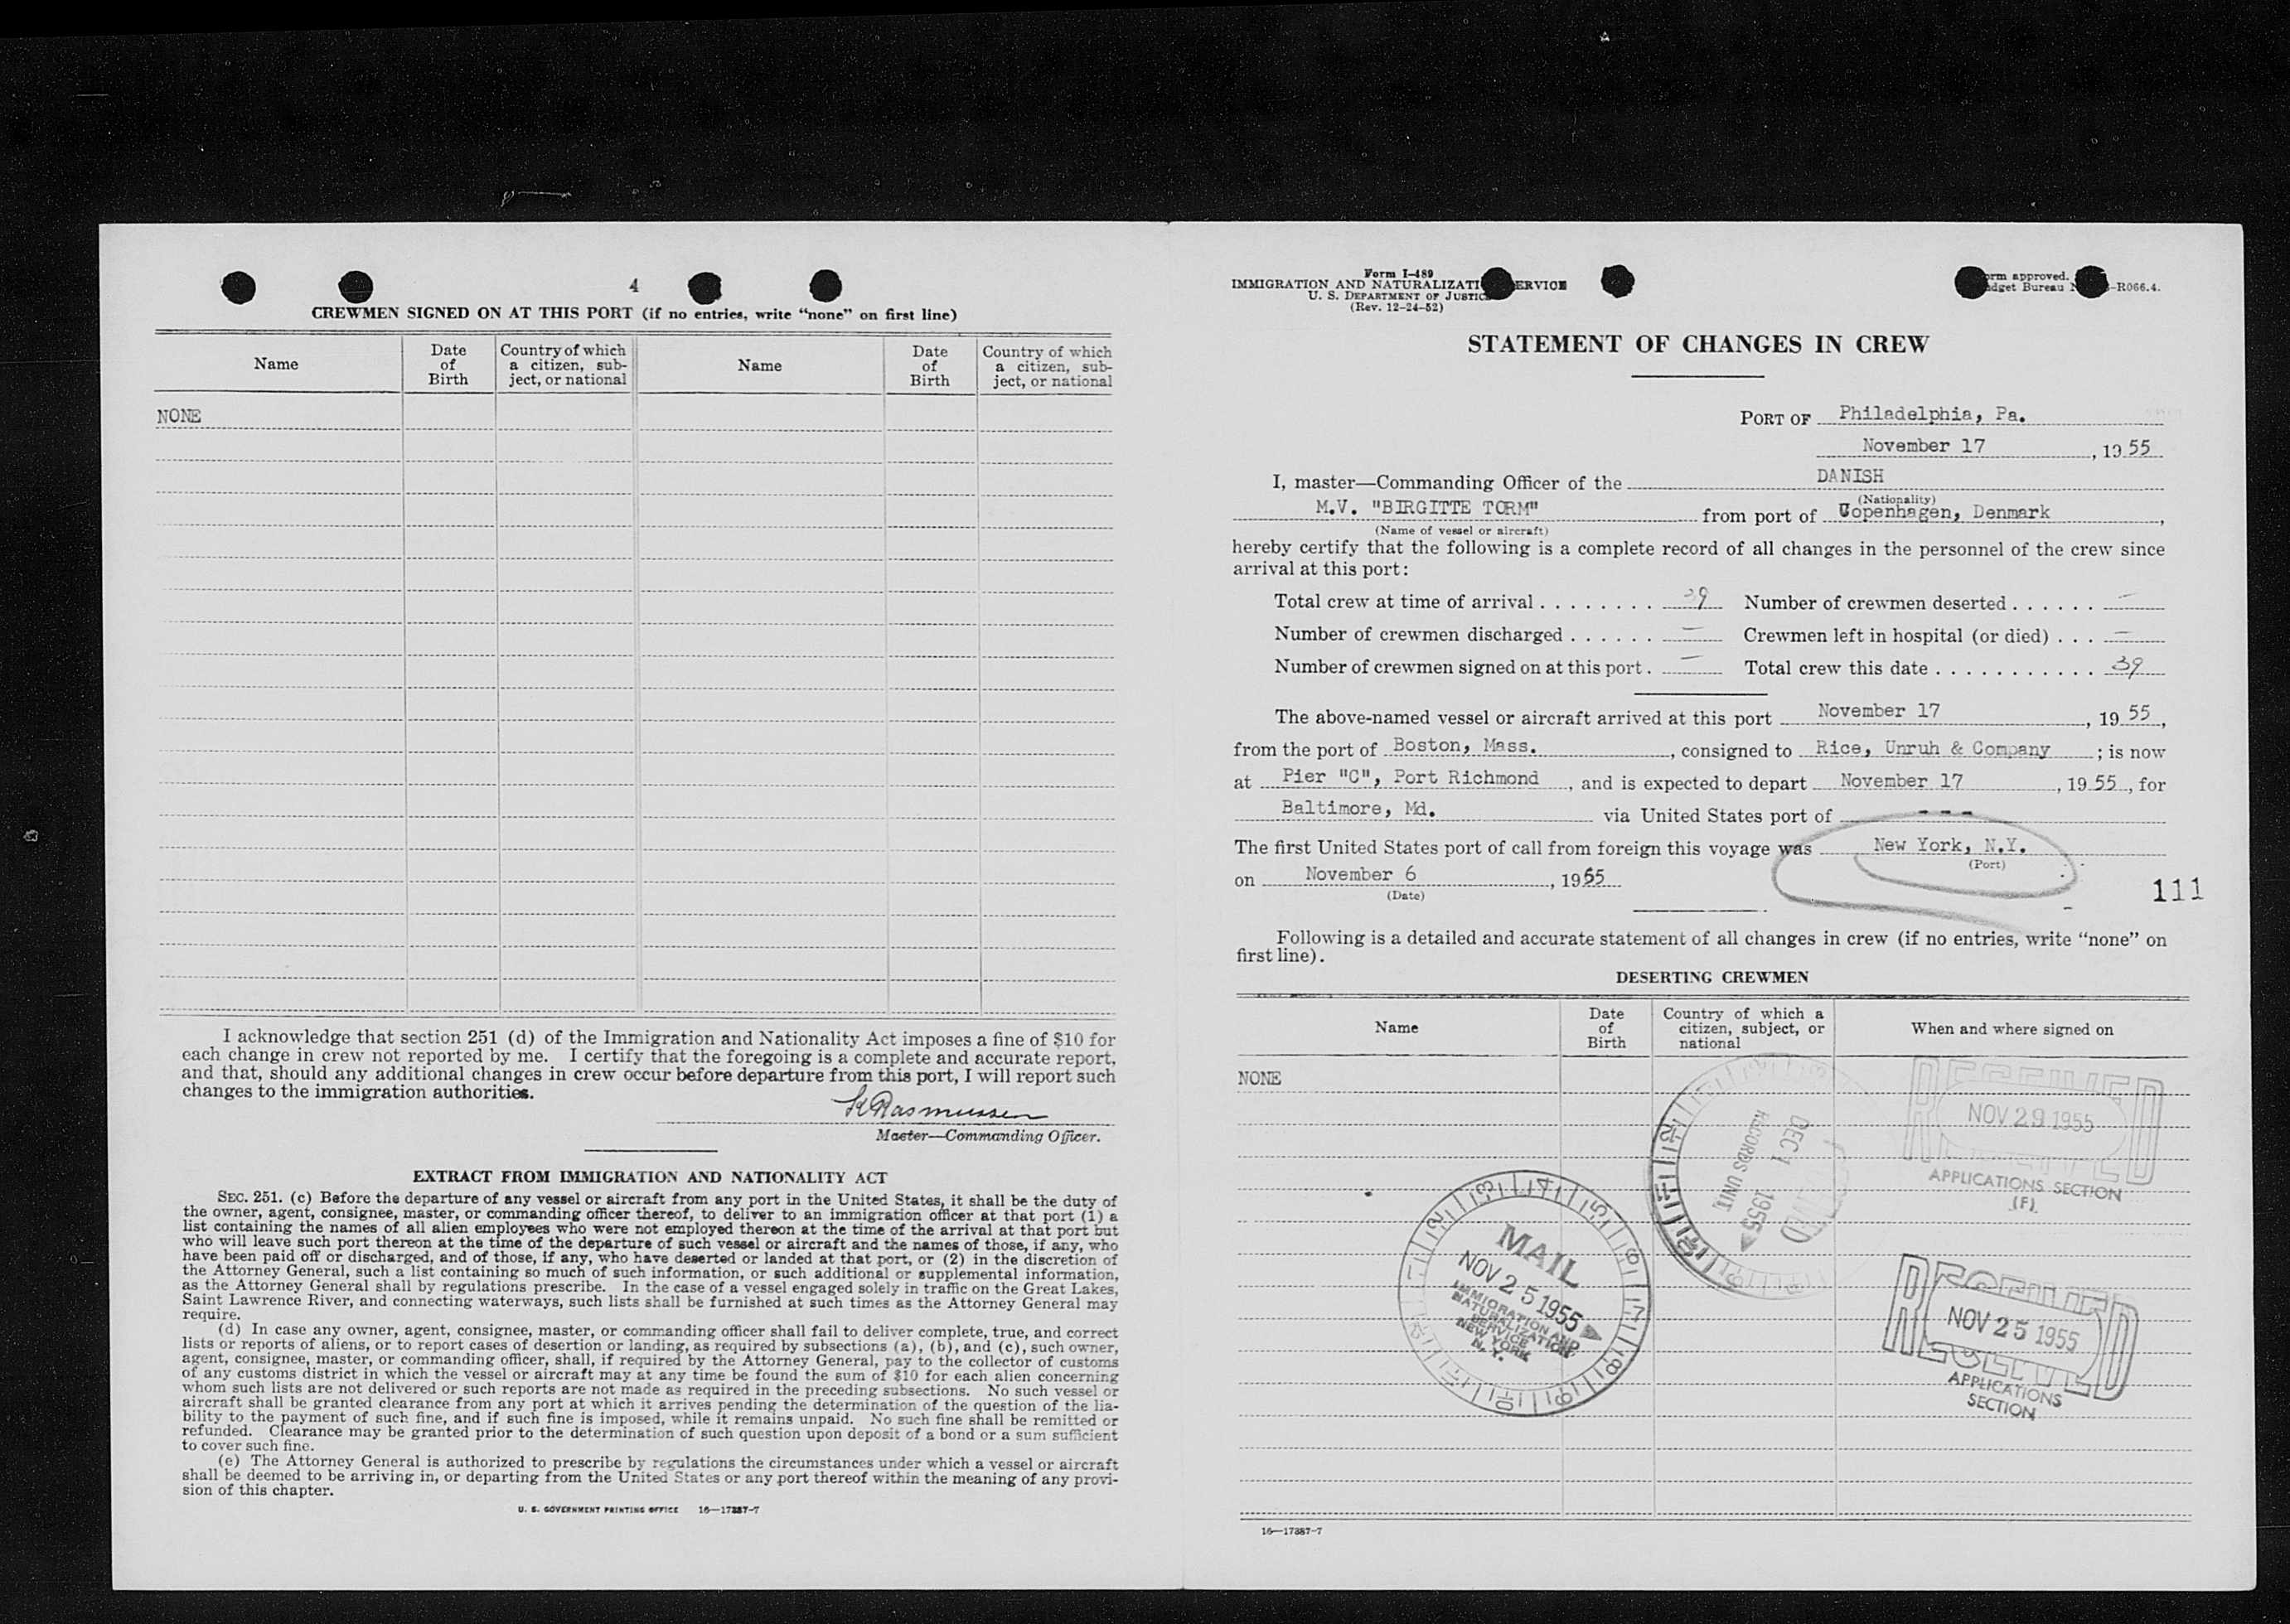 4
CREWMEN SIGNED ON AT THIS PORT (if no entries, write “none” on first line)
Name Date of Birth Country of which a citizen, subject, or national Name Date of Birth Country of which a citizen, subject, or national
NONE
I acknowledge that section 251 (d) of the Immigration and Nationality Act imposes a fine of $10 for
each change in crew not reported by me. I certify that the foregoing is a complete and accurate report,
and that, should any additional changes in crew occur before departure from this port, I will report such
changes to the immigration authorities.
K Rasmussen
Master—Commanding Officer.
EXTRACT FROM IMMIGRATION AND NATIONALITY ACT
SEC. 251. (c) Before the departure of any vessel or aircraft from any port in the United States, it shall be the duty of
the owner, agent, consignee, master, or commanding officer thereof, to deliver to an immigration officer at that port (1) a
list containing the names of all alien employees who were not employed thereon at the time of the arrival at that port but
who will leave such port thereon at the time of the departure of such vessel or aircraft and the names of those, if any, who
have been paid off or discharged, and of those, if any, who have deserted or landed at that port, or (2) in the discretion of
the Attorney General, such a list containing so much of such information, or such additional or supplemental information,
as the Attorney General shall by regulations prescribe. In the case of a vessel engaged solely in traffic on the Great Lakes,
Saint Lawrence River, and connecting waterways, such lists shall be furnished at such times as the Attorney General may
require.
(d) In case any owner, agent, consignee, master, or commanding officer shall fail to deliver complete, true, and correct
lists or reports of aliens, or to report cases of desertion or landing, as required by subsections (a), (b), and (c), such owner,
agent, consignee, master, or commanding officer, shall, if required by the Attorney General, pay to the collector of customs
of any customs district in which the vessel or aircraft may at any time be found the sum of $10 for each alien concerning
whom such lists are not delivered or such reports are not made as required in the preceding subsections. No such vessel or
aircraft shall be granted clearance from any port at which it arrives pending the determination of the question of the lia-
bility to the payment of such fine, and if such fine is imposed, while it remains unpaid. No such fine shall be remitted or
refunded. Clearance may be granted prior to the determination of such question upon deposit of a bond or a sum sufficient
to cover such fine.
(e) The Attorney General is authorized to prescribe by regulations the circumstances under which a vessel or aircraft
shall be deemed to be arriving in, or departing from the United States or any port thereof within the meaning of any provi-
sion of this chapter.
U. S. GOVERNMENT PRINTING OFFICE 16—17887-7
Form I-489
IMMIGRATION AND NATURALIZATI ERVICE
U. S. DEPARTMENT OF JUSTIC
(Rev. 12-24-52)
rm approved.
dget Bureau -R066.4.
STATEMENT OF CHANGES IN CREW
PORT OF Philadelphia, Pa.
November 17, 1955
I, master—Commanding Officer of the DANISH
(Nationality)
M.V. "BIRGITTE TORM" from port of Copenhagen, Denmark,
(Name of vessel or aircraft)
hereby certify that the following is a complete record of all changes in the personnel of the crew since
arrival at this port:
Total crew at time of arrival . . . . . . . . 39 Number of crewmen deserted . . . . . . —
Number of crewmen discharged . . . . . . — Crewmen left in hospital (or died) . . . —
Number of crewmen signed on at this port . — Total crew this date . . . . . . . . . . . 39
The above-named vessel or aircraft arrived at this port November 17, 1955,
from the port of Boston, Mass., consigned to Rice, Unruh & Company; is now
at Pier "C", Port Richmond, and is expected to depart November 17, 1955, for
Baltimore, Md. via United States port of - - -
The first United States port of call from foreign this voyage was New York, N.Y.
(Port)
on November 6, 1955
(Date)
111
Following is a detailed and accurate statement of all changes in crew (if no entries, write “none” on
first line).
DESERTING CREWMEN
Name Date of Birth Country of which a citizen, subject, or national When and where signed on
NONE
RECEIVED
NOV 29 1955
APPLICATIONS SECTION
(F)
DEC 1 1955
RECORDS UNIT
MAIL
NOV 25 1955
IMMIGRATION AND
NATURALIZATION
SERVICE
NEW YORK
N. Y.
RECEIVED
NOV 25 1955
APPLICATIONS
SECTION
16—17887-7